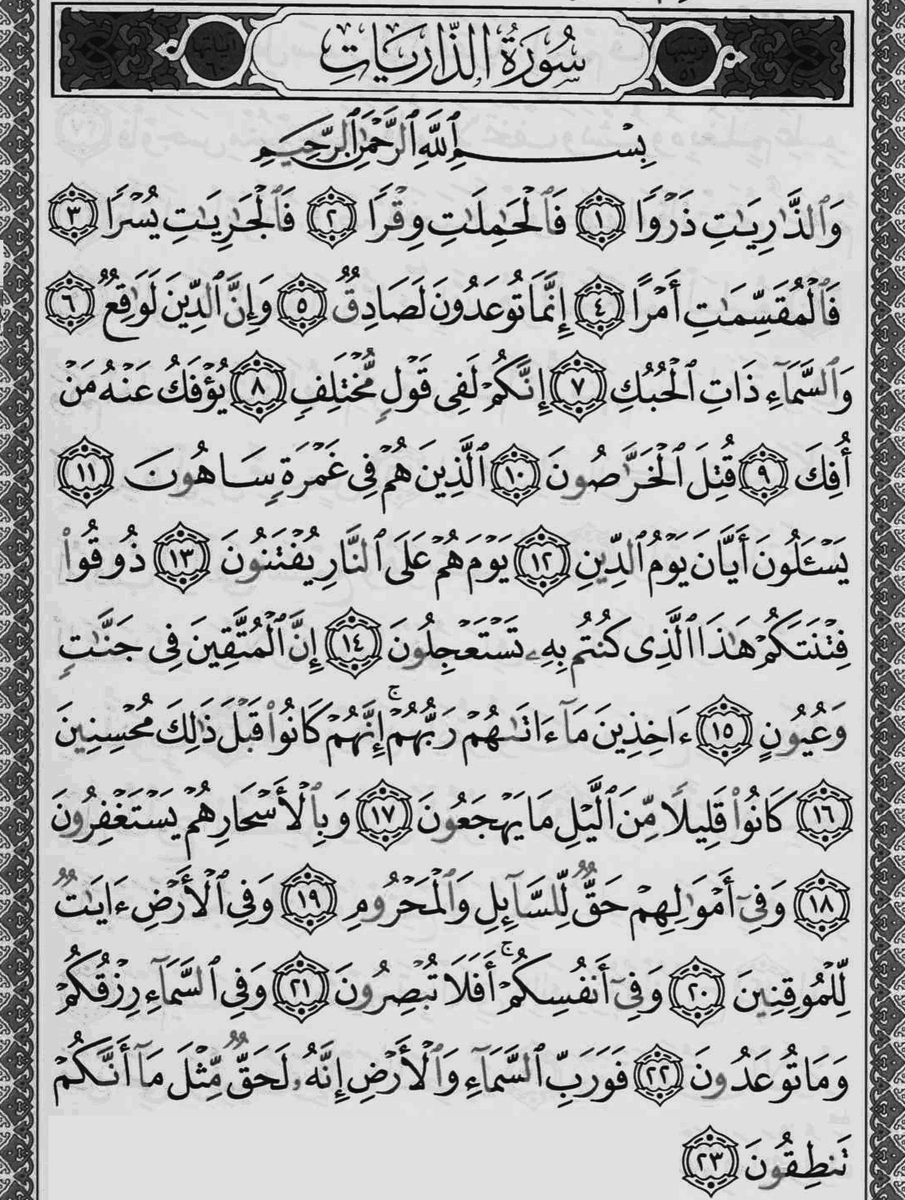 سُورَةُ الذَّارِيَاتِ
بِسْمِ ٱللَّهِ ٱلرَّحْمَٰنِ ٱلرَّحِيمِ
وَٱلذَّٰرِيَٰتِ ذَرْوًا ١ فَٱلْحَٰمِلَٰتِ وِقْرًا ٢ فَٱلْجَٰرِيَٰتِ يُسْرًا ٣
فَٱلْمُقَسِّمَٰتِ أَمْرًا ٤ إِنَّمَا تُوعَدُونَ لَصَادِقٌ ٥ وَإِنَّ ٱلدِّينَ لَوَٰقِعٌ ٦
وَٱلسَّمَآءِ ذَاتِ ٱلْحُبُكِ ٧ إِنَّكُمْ لَفِى قَوْلٍ مُّخْتَلِفٍ ٨ يُؤْفَكُ عَنْهُ مَنْ
أُفِكَ ٩ قُتِلَ ٱلْخَرَّٰصُونَ ١٠ ٱلَّذِينَ هُمْ فِى غَمْرَةٍ سَاهُونَ ١١
يَسْـَٔلُونَ أَيَّانَ يَوْمُ ٱلدِّينِ ١٢ يَوْمَ هُمْ عَلَى ٱلنَّارِ يُفْتَنُونَ ١٣ ذُوقُوا۟
فِتْنَتَكُمْ هَٰذَا ٱلَّذِى كُنتُم بِهِۦ تَسْتَعْجِلُونَ ١٤ إِنَّ ٱلْمُتَّقِينَ فِى جَنَّٰتٍ
وَعُيُونٍ ١٥ ءَاخِذِينَ مَآ ءَاتَىٰهُمْ رَبُّهُمْ ۚ إِنَّهُمْ كَانُوا۟ قَبْلَ ذَٰلِكَ مُحْسِنِينَ
١٦ كَانُوا۟ قَلِيلًا مِّنَ ٱلَّيْلِ مَا يَهْجَعُونَ ١٧ وَبِٱلْأَسْحَارِ هُمْ يَسْتَغْفِرُونَ
١٨ وَفِىٓ أَمْوَٰلِهِمْ حَقٌّ لِّلسَّآئِلِ وَٱلْمَحْرُومِ ١٩ وَفِى ٱلْأَرْضِ ءَايَٰتٌ
لِّلْمُوقِنِينَ ٢٠ وَفِىٓ أَنفُسِكُمْ ۚ أَفَلَا تُبْصِرُونَ ٢١ وَفِى ٱلسَّمَآءِ رِزْقُكُمْ
وَمَا تُوعَدُونَ ٢٢ فَوَرَبِّ ٱلسَّمَآءِ وَٱلْأَرْضِ إِنَّهُۥ لَحَقٌّ مِّثْلَ مَآ أَنَّكُمْ
تَنطِقُونَ ٢٣